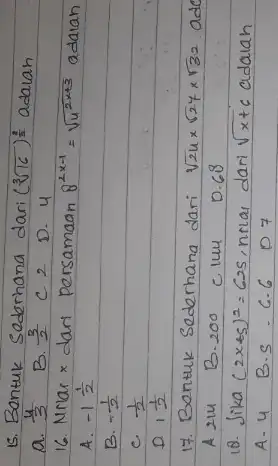 15. Bentuk sederhana dari (∛16)^(3/2) adalah
a. 4/3 B. 3/2 C 2 D. 4
16. Nilai x dari persamaan 8^(2x-1) = √4^(2x+3) adalah
A. -1 1/2
B. -1/2
C 1/2
D 1 1/2
17. Bentuk sederhana dari ∛24 x √27 x √32 ada
A 214 B. 200 C 144 D. 68
18. Jika (2x+5)² = 625, nilai dari √x+6 adalah
A. 4 B. 5 C. 6 D 7